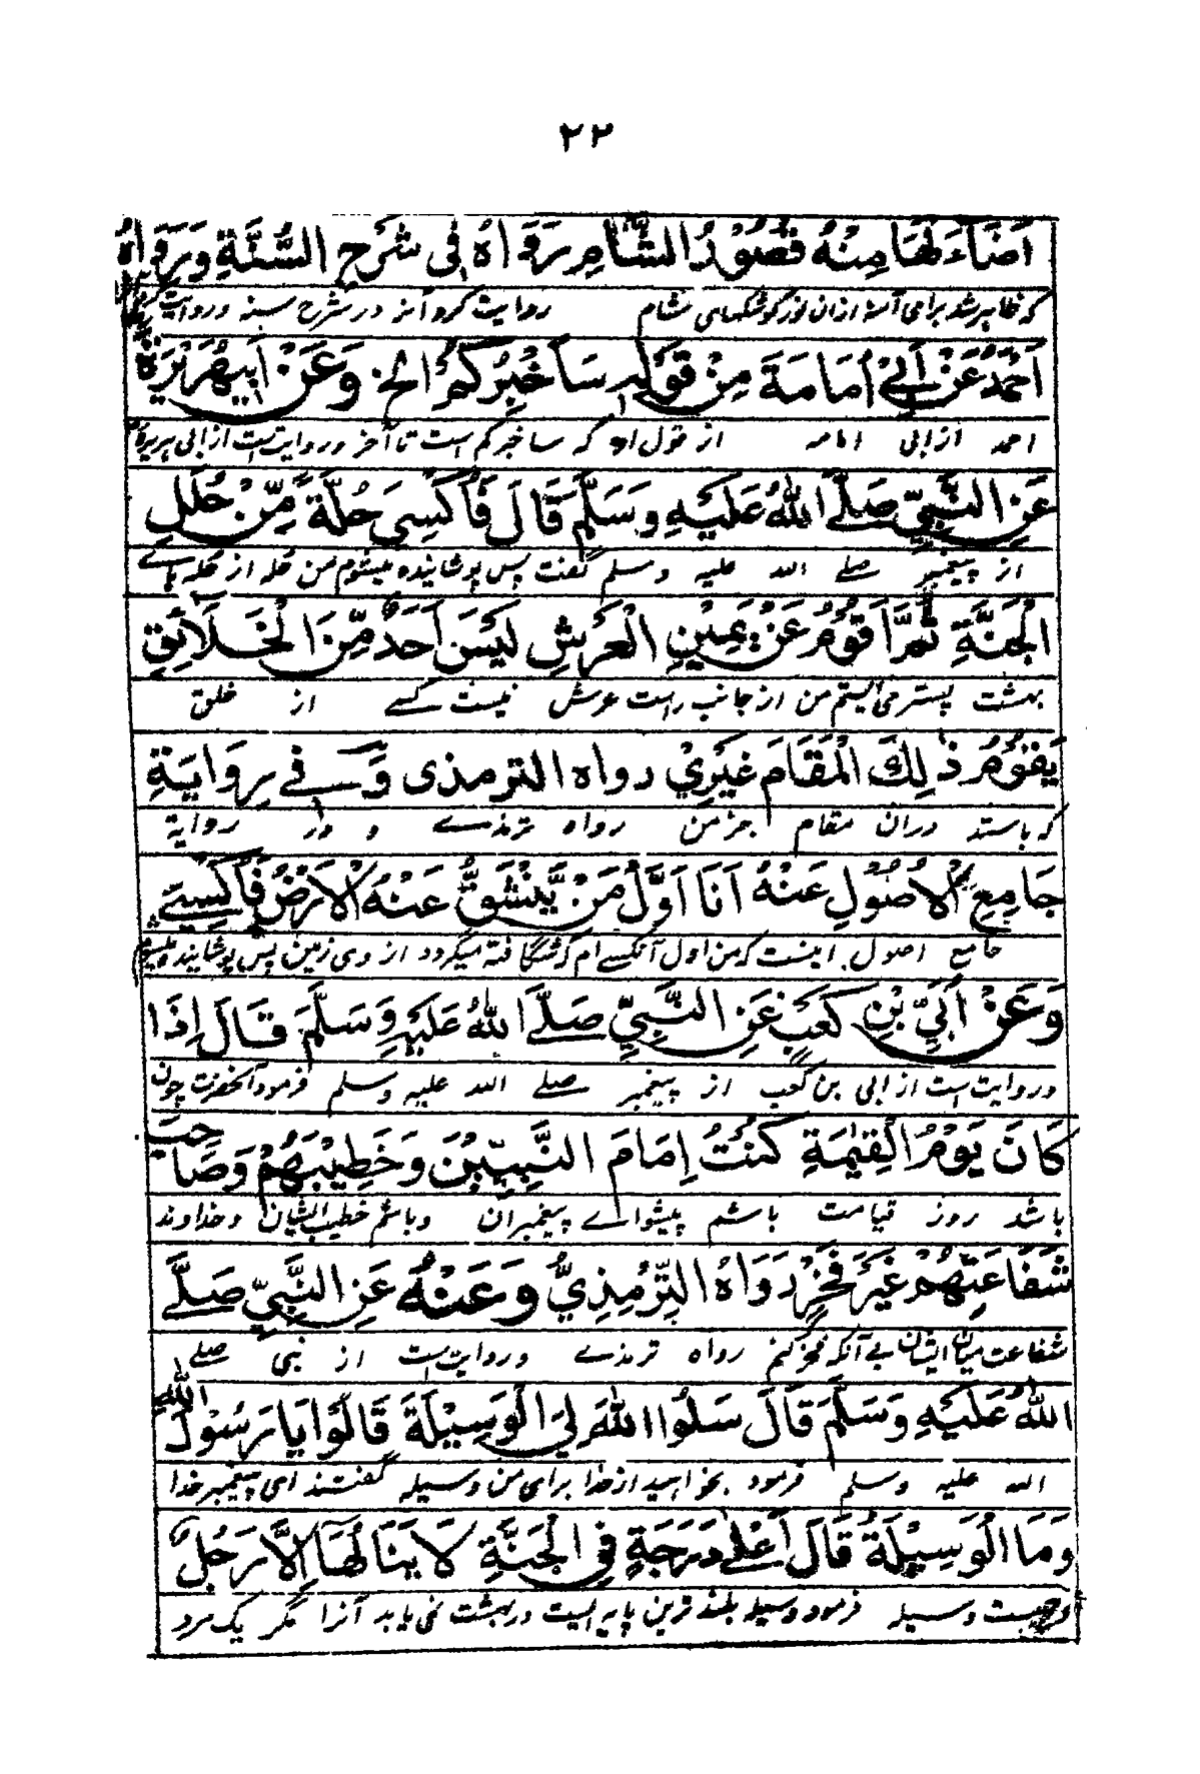 ٢٢
اَضَاءَ لَهَا مِنْهُ قُصُوْرُ الشَّامِ رَوَاهُ فِي شَرْحِ السُّنَّةِ وَرَوَاهُ
که ظاهر شد برای آمنه ازان نور کوشکهای شام روایت کرد آنرا در شرح سنه و روایت
اَحْمَدُ عَنْ اَبِيْ اُمَامَةَ مِنْ قَوْلِهِ سَاُخْبِرُكُمْ الخ وَعَنْ اَبِيْهُرَيْرَةَ
احمد از ابی امامه از قول او که ساخبرکم است تا آخر و روایت است از ابی هریره
عَنِ النَّبِيِّ صَلَّے اللهُ عَلَيْهِ وَسَلَّمَ قَالَ فَاُكْسٰى حُلَّةً مِّنْ حُلَلِ
از پیغمبر صلے الله علیه وسلم گفت پس پوشانیده میشوم من حله از حله هاے
الْجَنَّةِ ثُمَّ اَقُوْمُ عَنْ يَمِيْنِ الْعَرْشِ لَيْسَ اَحَدٌ مِّنَ الْخَلَائِقِ
بهشت پستر می ایستم من از جانب راست عرش نیست کسے از خلق
يَقُوْمُ ذٰلِكَ الْمَقَامَ غَيْرِيْ رواه الترمذى وَ فے رِوَايَةِ
که باستد دران مقام جز من رواه ترمذے و در روایة
جَامِعِ الْاُصُوْلِ عَنْهُ اَنَا اَوَّلُ مَنْ يَّنْشَقُّ عَنْهُ الْاَرْضُ فَاُكْسٰے
جامع اصول اینست که من اول آنکسے ام که شگافته میگردد از وی زمین پس پوشانیده میشوم
وَعَنْ اُبَيِّ بْنِ كَعْبٍ عَنِ النَّبِيِّ صَلَّے اللهُ عَلَيْهِ وَسَلَّمَ قَالَ اِذَا
و روایت است از ابی بن کعب از پیغمبر صلے الله علیه وسلم فرمود آنحضرت چون
كَانَ يَوْمُ الْقِيٰمَةِ كُنْتُ اِمَامَ النَّبِيِّيْنَ وَخَطِيْبَهُمْ وَصَاحِبَ
باشد روز قیامت باشم پیشواے پیغمبران و باشم خطیب ایشان و خداوند
شَفَاعَتِهِمْ غَيْرَ فَخْرٍ رَوَاهُ التِّرْمِذِيُّ وَعَنْهُ عَنِ النَّبِيِّ صَلَّے
شفاعت میان ایشان بے آنکه فخر کنم رواه ترمذے و روایت است از نبی صلے
اللهُ عَلَيْهِ وَسَلَّمَ قَالَ سَلُوا اللهَ لِيَ الْوَسِيْلَةَ قَالُوْا يَا رَسُوْلَ اللهِ
الله علیه وسلم فرمود بخواهید از خدا برای من وسیله گفتند ای پیغمبر خدا
وَمَا الْوَسِيْلَةُ قَالَ اَعْلٰى دَرَجَةٍ فِي الْجَنَّةِ لَا يَنَالُهَا اِلَّا رَجُلٌ
وچیست وسیله فرمود وسیله بلند ترین پایه ایست در بهشت نمی یابد آنرا مگر یک مرد